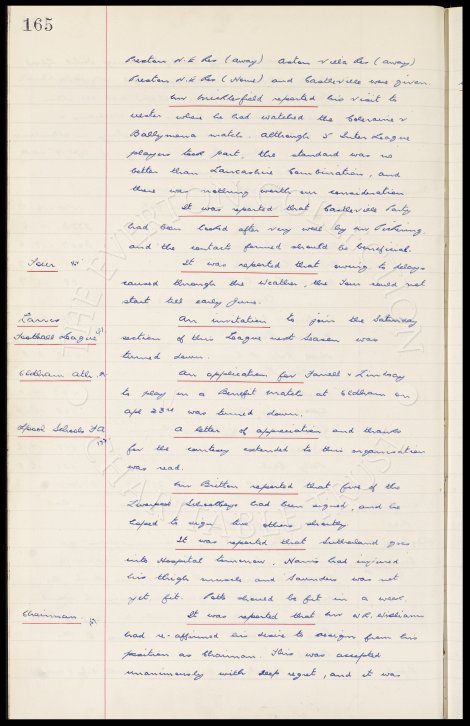 165
Preston N.E Res (away) Aston Villa Res (away)
Preston N.E Res (Home) and Castleville were given.
Mr Micklesfield reported his visit to
Ulster where he had watched the Coleraine v
Ballymena match. Although 5 Inter League
players took part, the standard was no
better than Lancashire Combination, and
there was nothing worth our consideration
It was reported that Castleville Party
had been looked after very well by Mr Pickering.
and the contacts formed should be beneficial.
Tour
It was reported that owing to delays
caused through the weather, the Tour could not
start till early June.
Lancs
Football League
An invitation to join the Saturday
section of this League next Season was
turned down.
Oldham Ath.
An application for Farrell & Lindsay
to play in a Benefit match at Oldham on
Apl 23rd was turned down.
L'pool Schools FA
A letter of appreciation and thanks
for the courtesy extended to this organisation
was read.
Mr Britton reported that five of the
Liverpool Schoolboys had been signed, and he
hoped to sign two others shortly
It was reported that Sutherland goes
into Hospital tomorrow, Harris had injured
his thigh muscle and Saunders was not
yet fit. Potts should be fit in a week
Chairman.
It was reported that Mr W.R. Williams
had re-affirmed his desire to resign from his
position as Chairman. This was accepted
unanimously with deep regret, and it was